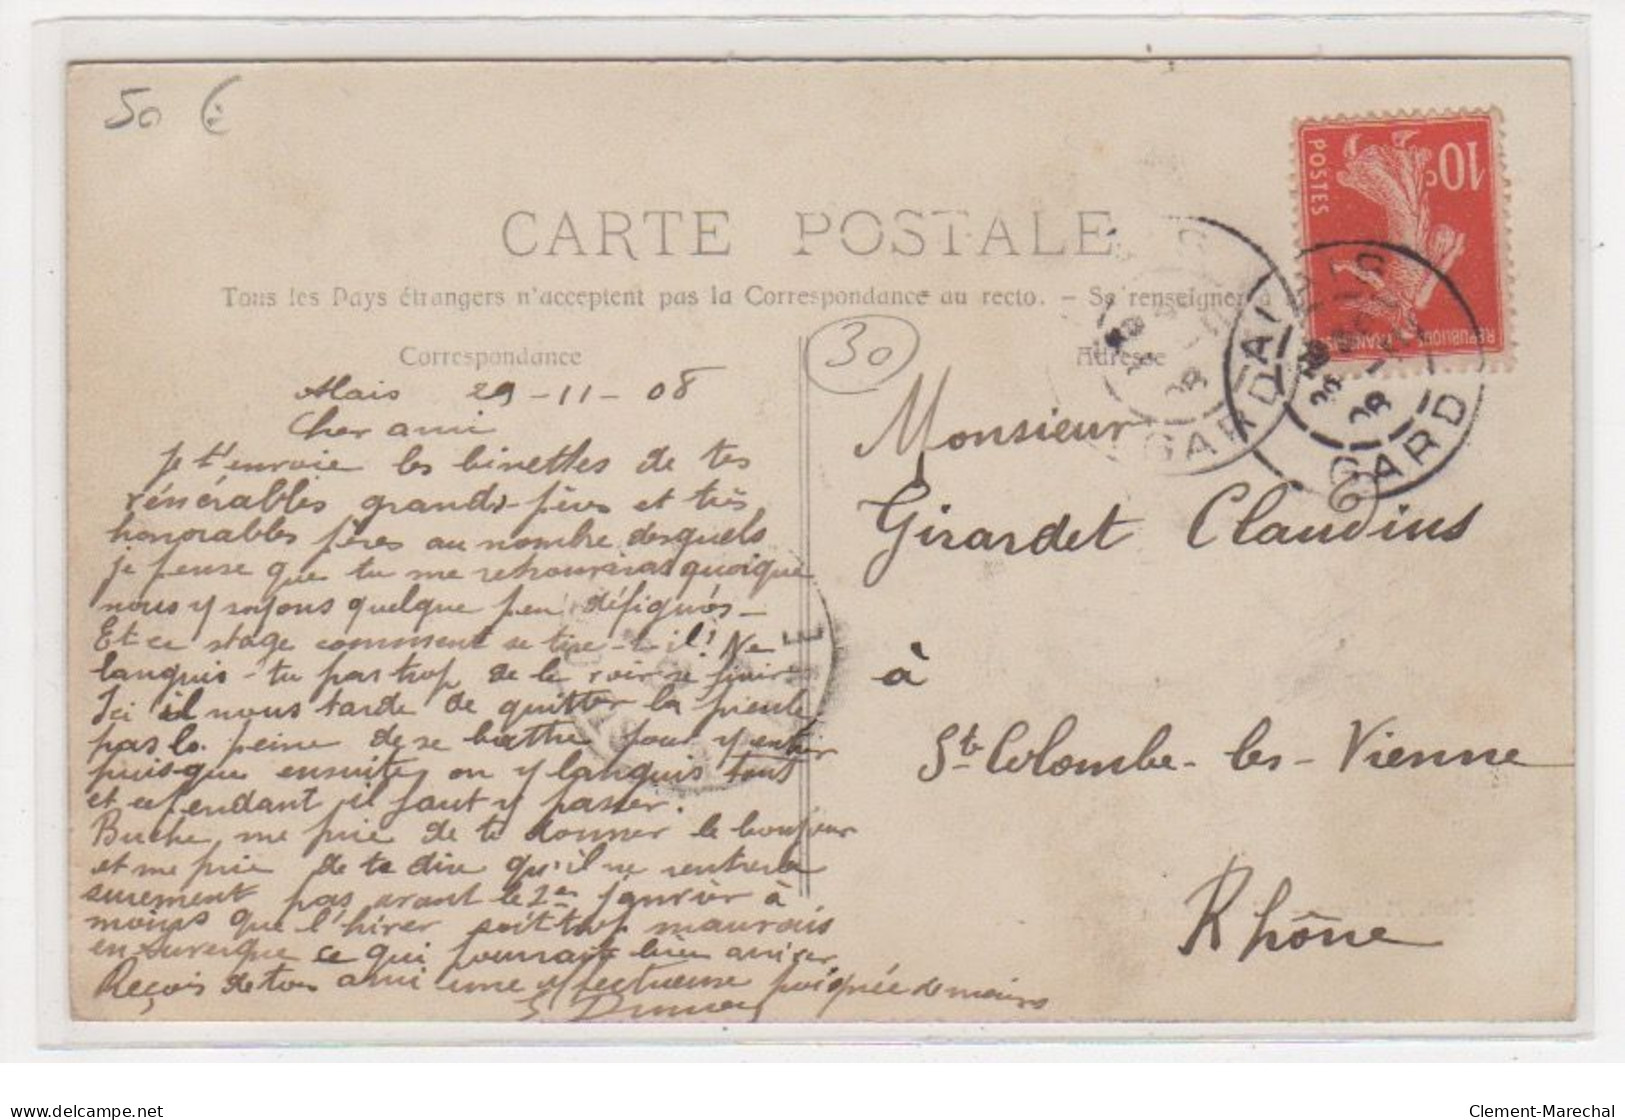 50 €
10c
POSTES
REPUBLIQUE FRANÇAISE
CARTE POSTALE
Tous les Pays étrangers n'acceptent pas la Correspondance au recto. - Se renseigner à
Correspondance
30
Adresse
GARD
GARD
Alais 29-11-08
Cher ami
Je t'envoie les binettes de tes
vénérables grands-pères et très
honorables pères au nombre desquels
je pense que tu me retrouveras quoique
nous y soyons quelque peu défigurés-
Et ce stage comment se tire-t-il! Ne
languis-tu pas trop de le voir se finir
Ici il nous tarde de quitter la
pas la peine de se battre pour y entrer
puisque ensuite on y languis tant
et cependant il faut y passer.
Buche me prie de te donner le bonjour
et me prie de te dire qu'il ne rentrera
surement pas avant le 1er janvier à
moins que l'hiver soit trop mauvais
en Auvergne ce qui pourrait bien arriver.
Reçois de ton ami une affectueuse poignée de mains
Monsieur
Girardet Claudius
à
Ste Colombe-les-Vienne
Rhône
delcampe.net
Clement-Marechal